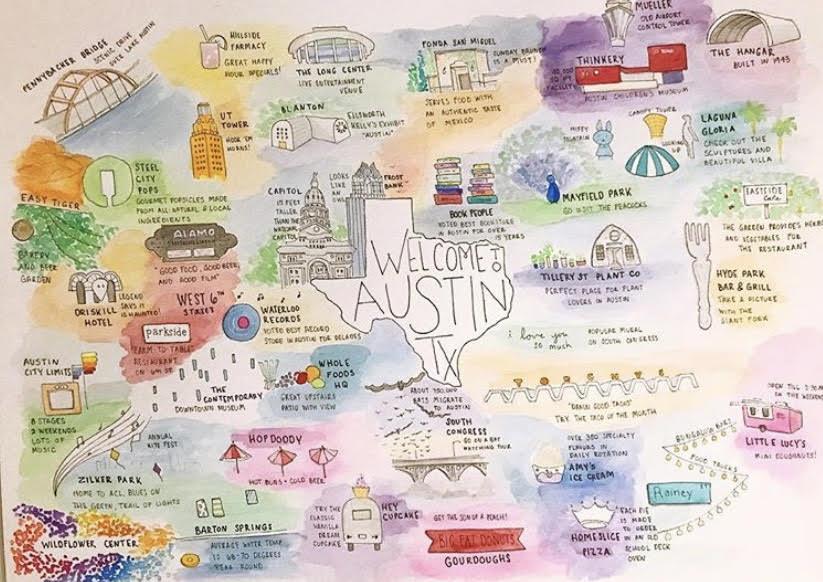 PENNYBACKER BRIDGE
SCENIC DRIVE
OVER LAKE AUSTIN
HILLSIDE
FARMACY
GREAT HAPPY
HOUR SPECIALS!
THE LONG CENTER
LIVE ENTERTAINMENT
VENUE
FONDA SAN MIGUEL
SUNDAY BRUNCH
IS A MUST!
SERVES FOOD WITH
AN AUTHENTIC TASTE
OF MEXICO
MUELLER
OLD AIRPORT
CONTROL TOWER
THINKERY
40,000
SQ FT
FACILITY
AUSTIN CHILDREN'S MUSEUM
THE HANGAR
BUILT IN 1943
UT
TOWER
HOOK 'EM
HORNS!
BLANTON
ELLSWORTH
KELLY'S EXHIBIT
"AUSTIN"
STEEL
CITY
POPS
GOURMET POPSICLES MADE
FROM ALL NATURAL & LOCAL
INGREDIENTS
CAPITOL
15 FEET
TALLER
THAN THE
NATIONAL
CAPITOL
LOOKS
LIKE
AN
OWL
FROST
BANK
BOOK PEOPLE
VOTED BEST BOOKSTORE
IN AUSTIN FOR OVER
15 YEARS
MAYFIELD PARK
GO VISIT THE PEACOCKS
MIFFY
FOUNTAIN
CANOPY TOWER
LOOKING UP
LAGUNA
GLORIA
CHECK OUT THE
SCULPTURES AND
BEAUTIFUL VILLA
EASY TIGER
BAKERY
AND BEER
GARDEN
ALAMO
"GOOD FOOD, GOOD BEER,
AND GOOD FILM"
EASTSIDE
Cafe
THE GARDEN PROVIDES HERBS
AND VEGETABLES FOR
THE RESTAURANT
DRISKILL
HOTEL
LEGEND
SAYS IT
IS HAUNTED!
WEST 6TH
STREET
WATERLOO
RECORDS
VOTED BEST RECORD
STORE IN AUSTIN FOR DECADES
WELCOME TO
AUSTIN
TX
TILLERY ST PLANT CO
PERFECT PLACE FOR PLANT
LOVERS IN AUSTIN
HYDE PARK
BAR & GRILL
TAKE A PICTURE
WITH THE
GIANT FORK
parkside
FARM-TO-TABLE
RESTAURANT
ON 6TH ST.
i love you
so much
POPULAR MURAL
ON SOUTH CONGRESS
AUSTIN
CITY LIMITS
8 STAGES
2 WEEKENDS
LOTS OF
MUSIC
THE
CONTEMPORARY
DOWNTOWN MUSEUM
WHOLE
FOODS
HQ
GREAT UPSTAIRS
PATIO WITH VIEW
ABOUT 750,000
BATS MIGRATE
TO AUSTIN
SOUTH
CONGRESS
GO ON A BAT
WATCHING TOUR
TORCHYS
"DAMN GOOD TACOS"
TRY THE TACO OF THE MONTH
LITTLE LUCY'S
MINI DOUGHNUTS!
ANNUAL
KITE FEST
ZILKER PARK
HOME TO ACL, BLUES ON
THE GREEN, TRAIL OF LIGHTS
HOPDODDY
HOT BUNS • COLD BEER
OVER 350 SPECIALTY
FLAVORS IN
DAILY ROTATION
AMY'S
ICE CREAM
BUNGALOW BARS
FOOD TRUCKS
Rainey ST
WILDFLOWER CENTER
BARTON SPRINGS
AVERAGE WATER TEMP
IS 68-70 DEGREES
YEAR ROUND
TRY THE
CLASSIC
VANILLA
DREAM
CUPCAKE
HEY
CUPCAKE
GET THE SON OF A PEACH!
BIG FAT DONUTS
GOURDOUGHS
HOMESLICE
PIZZA
EACH PIE
IS MADE
TO ORDER
IN AN OLD
SCHOOL DECK
OVEN